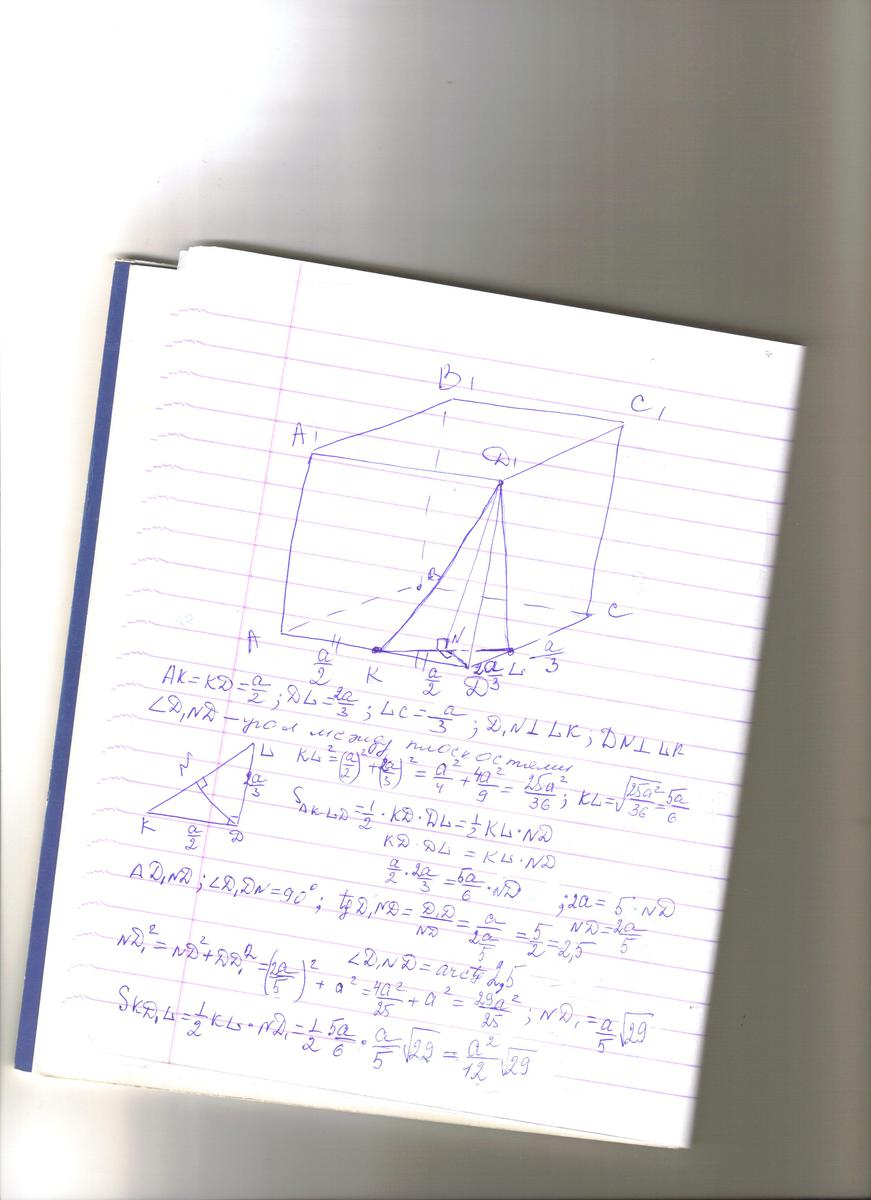 B1
C1
A1
D1
B
C
A
K
N
D
L
a/2
a/2
2a/3
a/3
AK=KD=a/2; DL=2a/3; LC=a/3; D₁N⊥LK; DN⊥LK
∠D₁ND – угол между плоскостями
KL²=(a/2)²+(2a/3)²=a²/4+4a²/9=25a²/36; KL=√(25a²/36)=5a/6
N
L
2a/3
K
a/2
D
S△KLD=1/2·KD·DL=1/2KL·ND
KD·DL=KL·ND
a/2·2a/3=5a/6·ND ; 2a=5·ND
ND=2a/5
△D₁ND; ∠D₁DN=90°; tgD₁ND=D₁D/ND=a/(2a/5)=5/2=2,5
∠D₁ND=arctg 2,5
ND₁²=ND²+DD₁²=(2a/5)²+a²=4a²/25+a²=29a²/25; ND₁=a/5√29
SKD₁L=1/2KL·ND₁=1/2 5a/6·a/5√29=a²/12√29